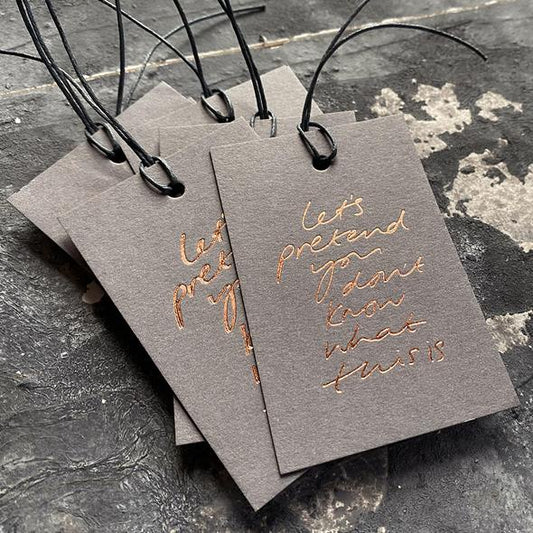 let's
pretend
you
don't
know
what
this is
let
pret
yo